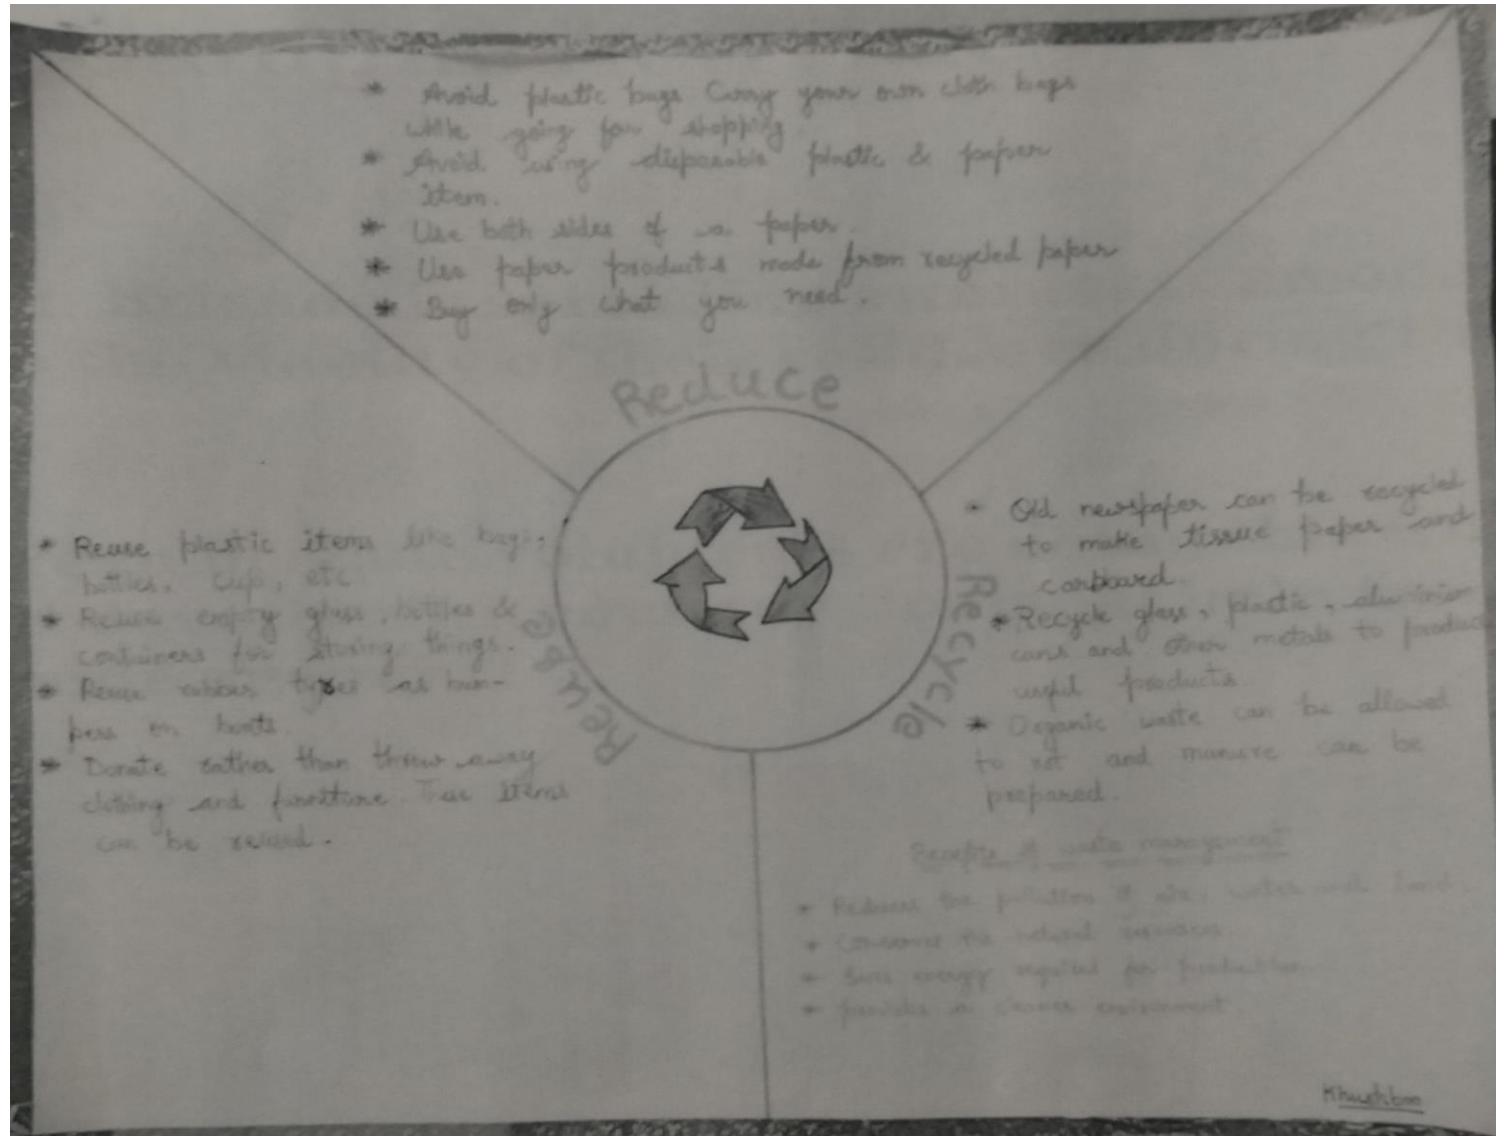 * Avoid plastic bags Carry your own cloth bags
while going for shopping
* Avoid using disposable plastic & paper
item.
* Use both sides of a paper.
* Use paper products made from recycled paper
* Buy only what you need.
Reduce
* Reuse plastic items like bags,
bottles, cups, etc
* Reuse empty glass, bottles &
containers for storing things.
* Reuse rubber tyres as bum-
pers on boats.
* Donate rather than throw away
clothing and furniture. These items
can be reused.
Reuse
Recycle
* Old newspaper can be recycled
to make tissue paper and
carboard.
* Recycle glass, plastic,
cans and other metals to produce
useful products
* Organic waste can be allowed
to rot and manure can be
prepared.
Benefits of waste management
* Reduces the pollution of air, water and land.
* Conserves the natural resources
* Saves energy required for production
* provides a cleaner environment
Khushboo